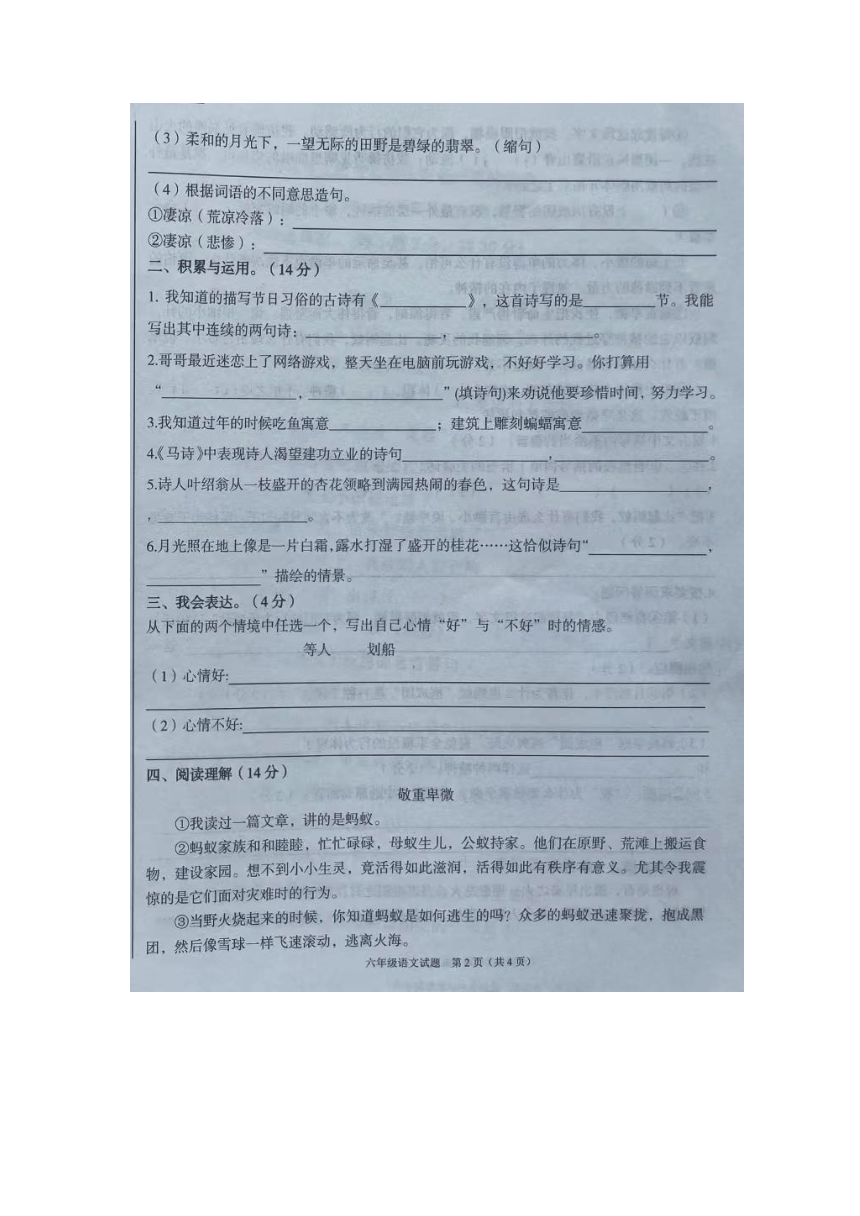 （3）柔和的月光下，一望无际的田野是碧绿的翡翠。（缩句）
（4）根据词语的不同意思造句。
①凄凉（荒凉冷落）：
②凄凉（悲惨）：
二、积累与运用。（14分）
1. 我知道的描写节日习俗的古诗有《                》，这首诗写的是            节。我能
写出其中连续的两句诗：                ，                。
2.哥哥最近迷恋上了网络游戏，整天坐在电脑前玩游戏，不好好学习。你打算用
“                ，                ”(填诗句)来劝说他要珍惜时间，努力学习。
3.我知道过年的时候吃鱼寓意                ；建筑上雕刻蝙蝠寓意                。
4.《马诗》中表现诗人渴望建功立业的诗句                ，                。
5.诗人叶绍翁从一枝盛开的杏花领略到满园热闹的春色，这句诗是                ，
，                。
6.月光照在地上像是一片白霜,露水打湿了盛开的桂花……这恰似诗句“                ，
                ”描绘的情景。
三、我会表达。（4分）
从下面的两个情境中任选一个，写出自己心情“好”与“不好”时的情感。
等人    划船
（1）心情好:
（2）心情不好:
四、阅读理解（14分）
敬重卑微
①我读过一篇文章，讲的是蚂蚁。
②蚂蚁家族和和睦睦，忙忙碌碌，母蚁生儿，公蚁持家。他们在原野、荒滩上搬运食
物，建设家园。想不到小小生灵，竟活得如此滋润，活得如此有秩序有意义。尤其令我震
惊的是它们面对灾难时的行为。
③当野火烧起来的时候，你知道蚂蚁是如何逃生的吗？众多的蚂蚁迅速聚拢，抱成黑
团，然后像雪球一样飞速滚动，逃离火海。
六年级语文试题  第2页（共4页）